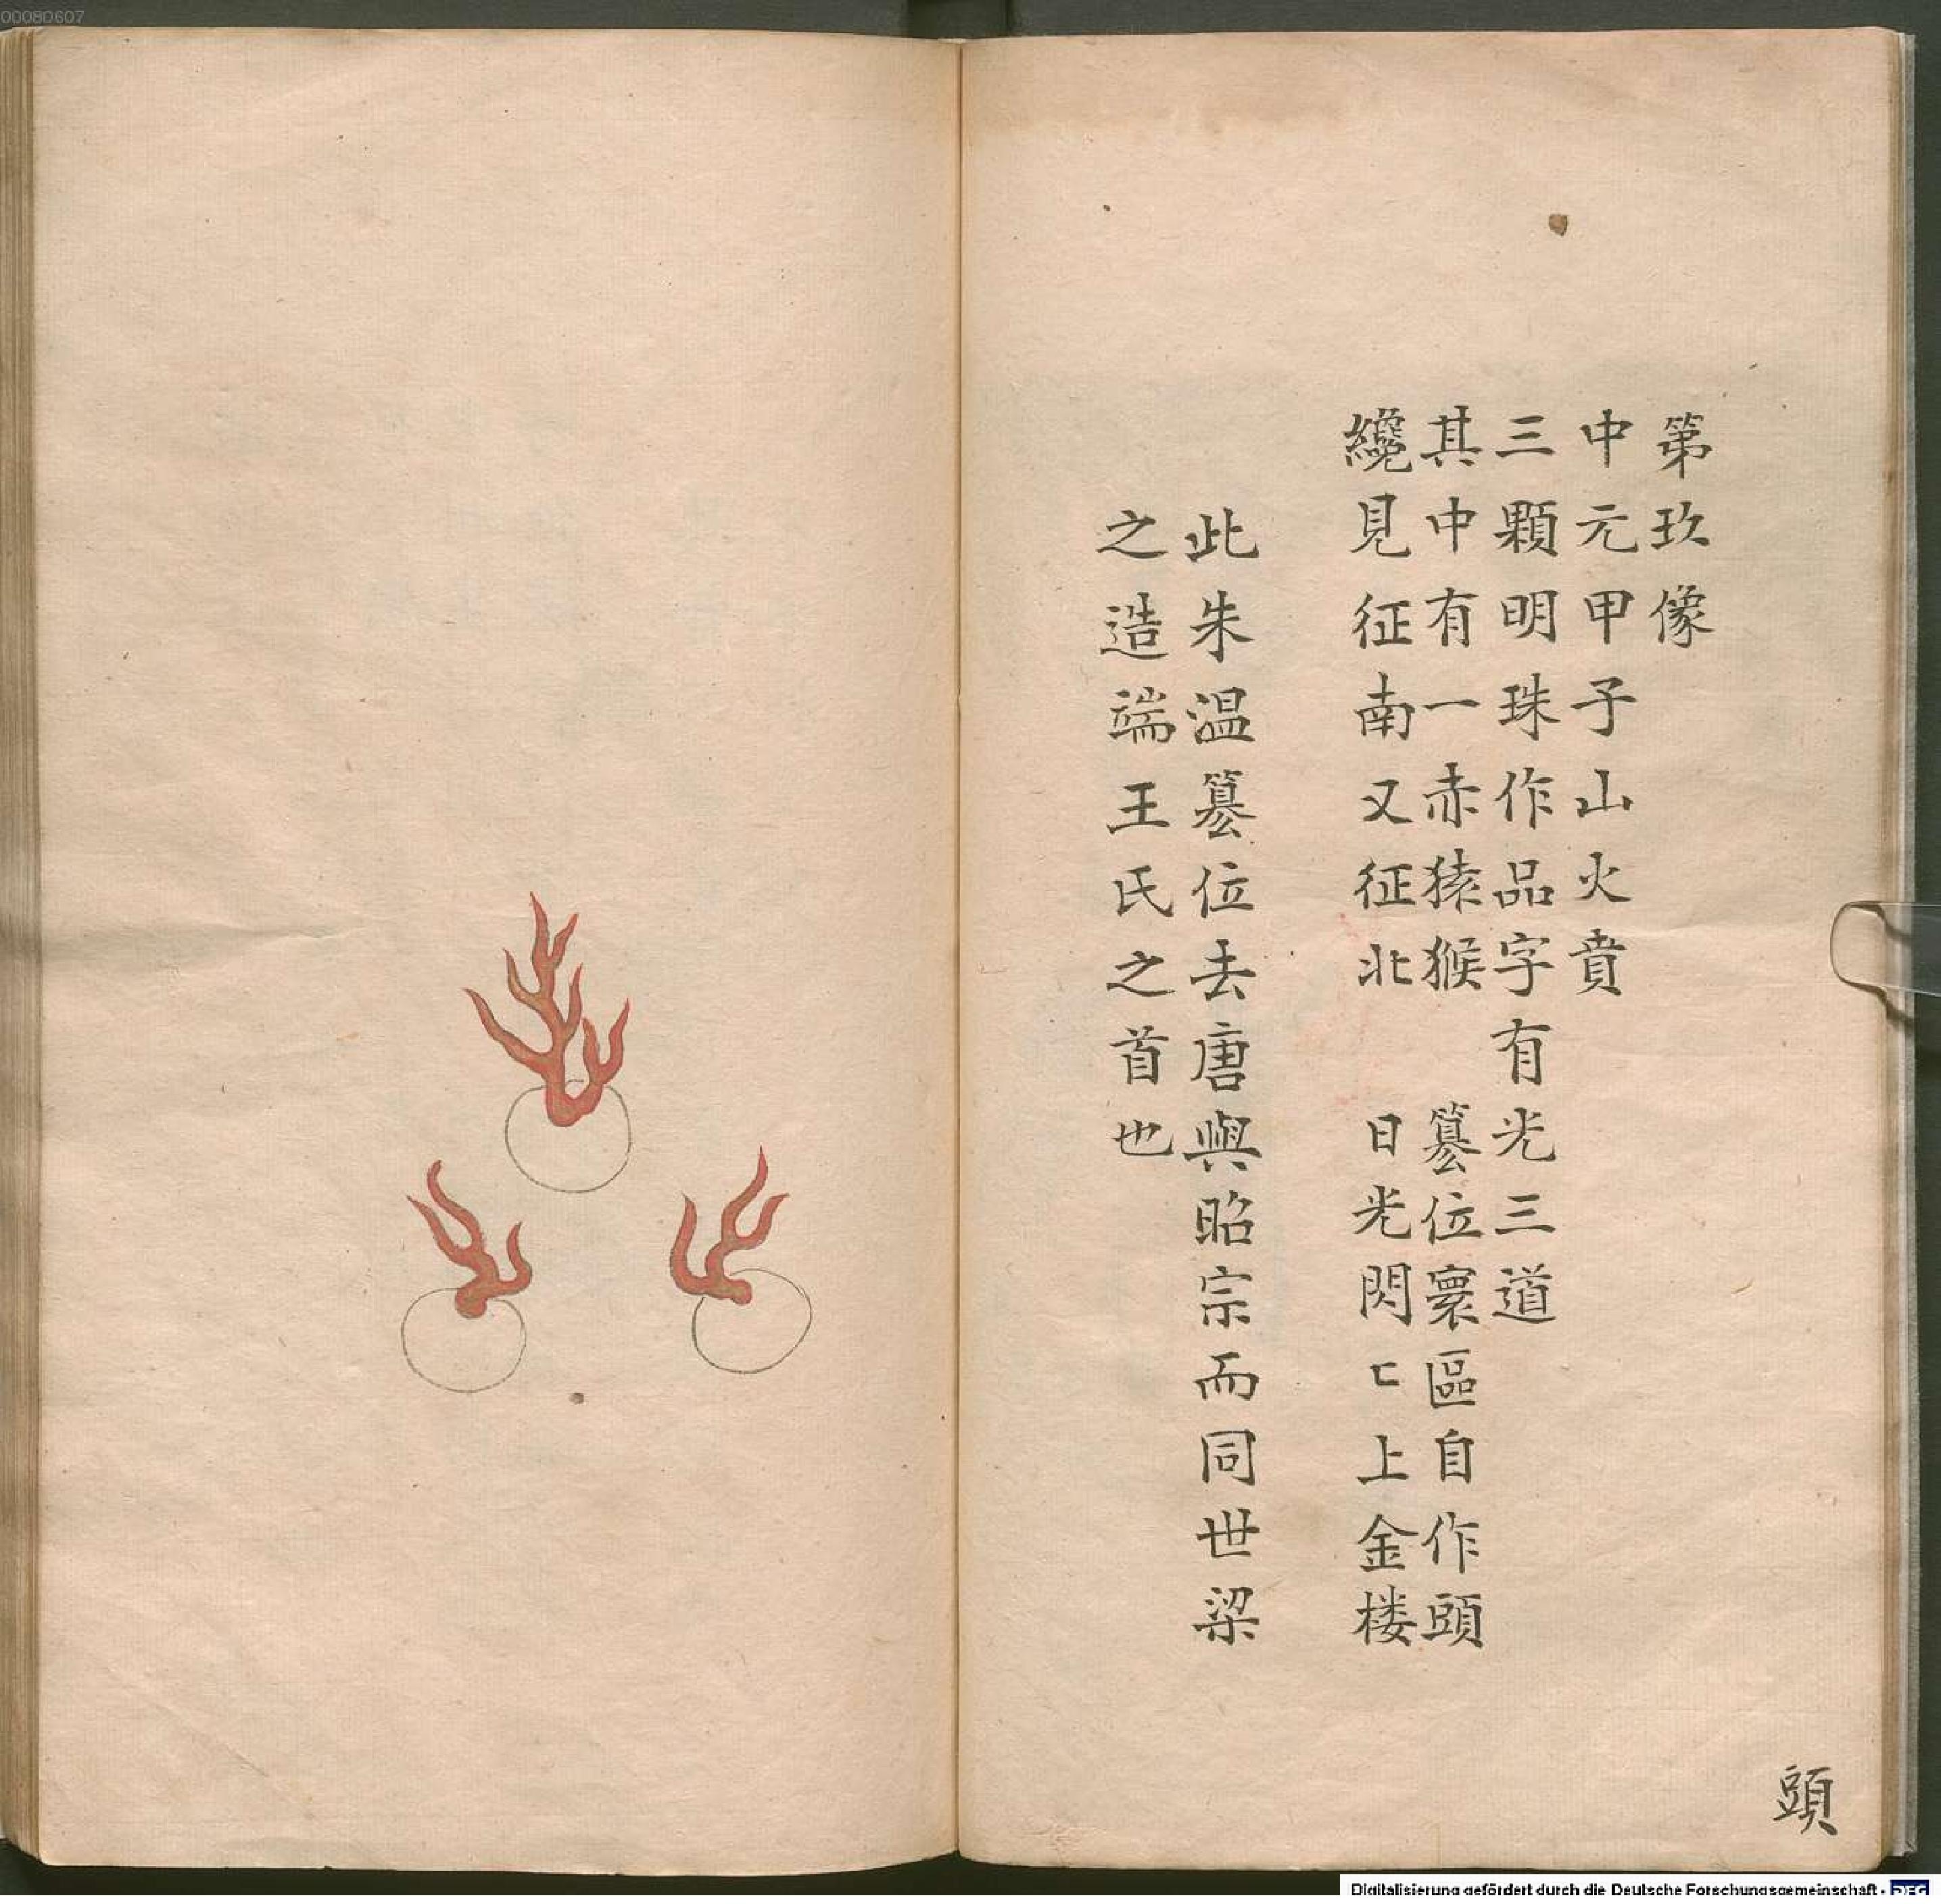 00080607
第玖像
中元甲子山火賁
三顆明珠作品字有光三道
其中有一赤猿猴　篡位寰區自作頭
纔見征南又征北　日光閃〻上金楼
此朱温篡位去唐與昭宗而同世梁
之造端王氏之首也
頭
Digitalisierung gefördert durch die Deutsche Forschungsgemeinschaft - DFG